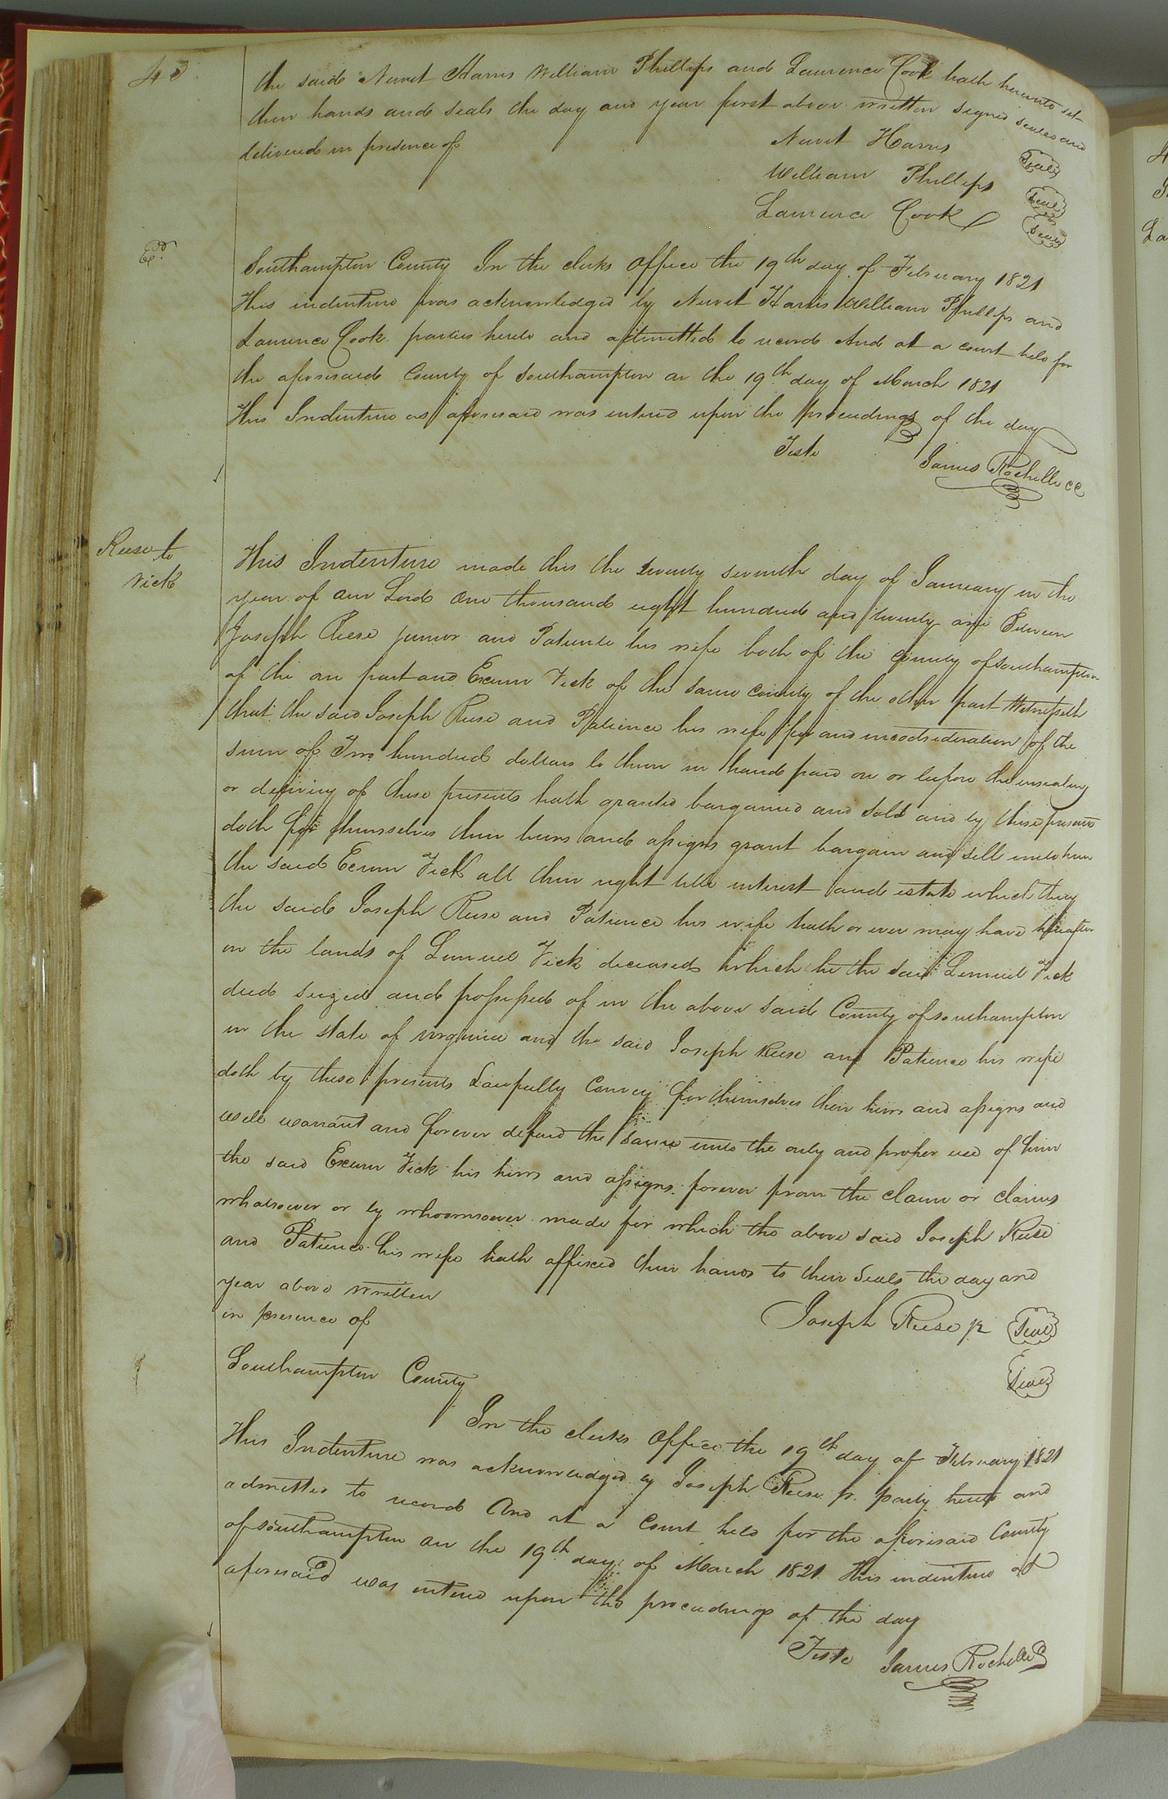 43
the said Newit Harris William Phillips and Laurence Cook hath hereunto set
their hands and seals the day and year first above written signed sealed and
delivered in presence of
Newit Harris Seal
William Phillips Seal
Laurence Cook Seal
Ed.
Southampton County In the clerks office the 19th day of February 1821
This indenture was acknowledged by Newit Harris William Phillips and
Laurence Cook parties hereto and admitted to record And at a court held for
the aforesaid County of Southampton on the 19th day of March 1821
This Indenture as aforesaid was entered upon the proceedings of the day
Teste James Rochelle CC
Reese to
Vick
This Indenture made this the twenty seventh day of January in the
year of our Lord one thousand eight hundred and twenty one Between
Joseph Reese junior and Patience his wife both of the County of Southampton
of the one part and Exum Vick of the same county of the other part Witnesseth
that the said Joseph Reese and Patience his wife for and in consideration of the
sum of Two hundred dollars to them in hand paid on or before the ensealing
or delivery of these presents hath granted bargained and sold and by these presents
doth for themselves their heirs and assigns grant bargain and sell unto him
the said Exum Vick all their right title interest and estate which they
the said Joseph Reese and Patience his wife hath or ever may have hereafter
in the lands of Lemuel Vick deceased which he the said Lemuel Vick
died seized and possessed of in the above said County of Southampton
in the state of virginia and the said Joseph Reese and Patience his wife
doth by these presents Lawfully Convey for themselves their heirs and assigns and
will warrant and forever defend the same unto the only and proper use of him
the said Exum Vick his heirs and assigns forever from the claim or claims
whatsoever or by whomsoever made for which the above said Joseph Reese
and Patience his wife hath affixed their hands to their Seals the day and
year above written
in presence of
Joseph Reese jr Seal
Seal
Southampton County
In the clerks Office the 19th day of February 1821
This Indenture was acknowledged by Joseph Reese jr. party hereto and
admitted to record And at a Court held for the aforesaid County
of Southampton on the 19th day of March 1821 This indenture as
aforesaid was entered upon the proceedings of the day
Teste James Rochelle